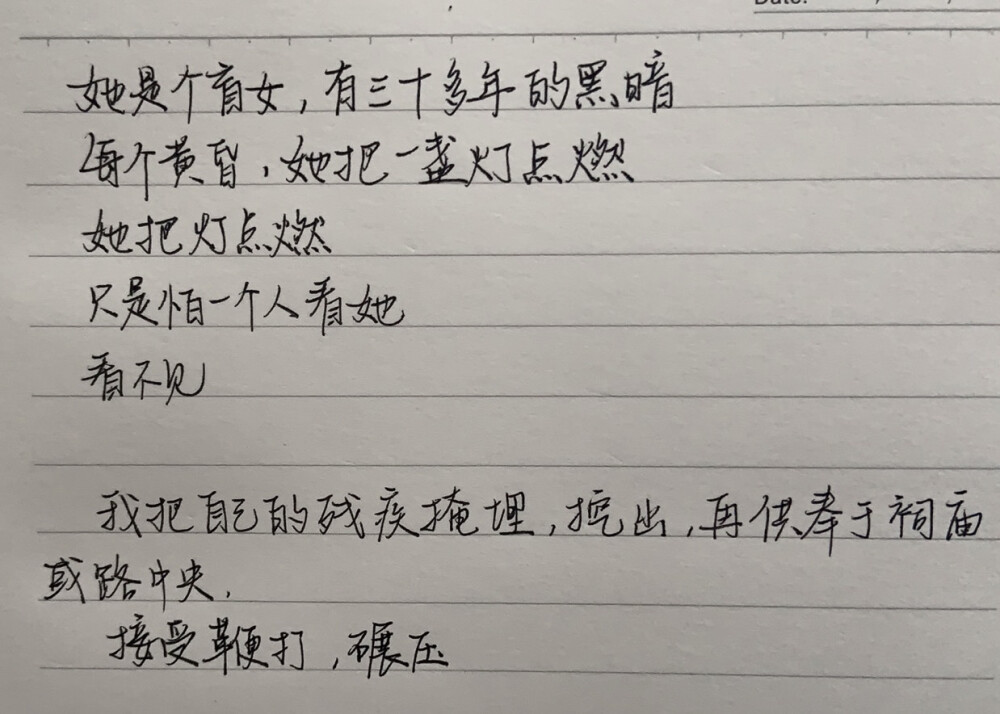 Date:
她是个盲女，有三十多年的黑暗
每个黄昏，她把一盏灯点燃
她把灯点燃
只是怕一个人看她
看不见
我把自己的残疾掩埋，挖出，再供奉于祠庙
或路中央，
接受鞭打，碾压